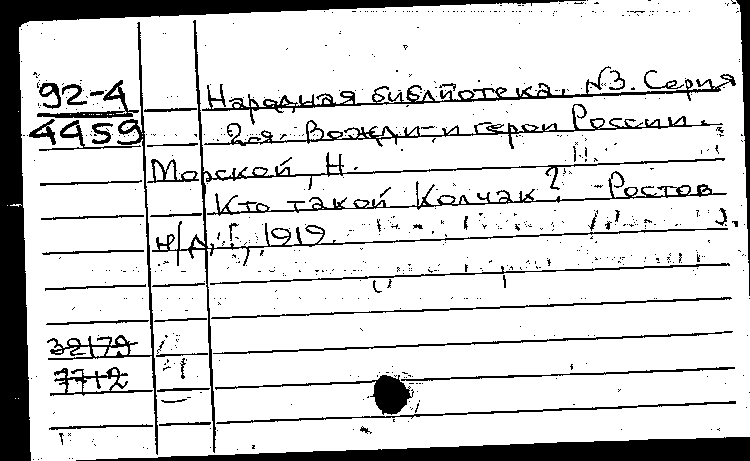 92-4
4459
Народная библиотека. N3. Серия
2-я. Вожди и герои России.
Морской, Н.
Кто такой Колчак? - Ростов
н/Д, 1919.
32179
7712